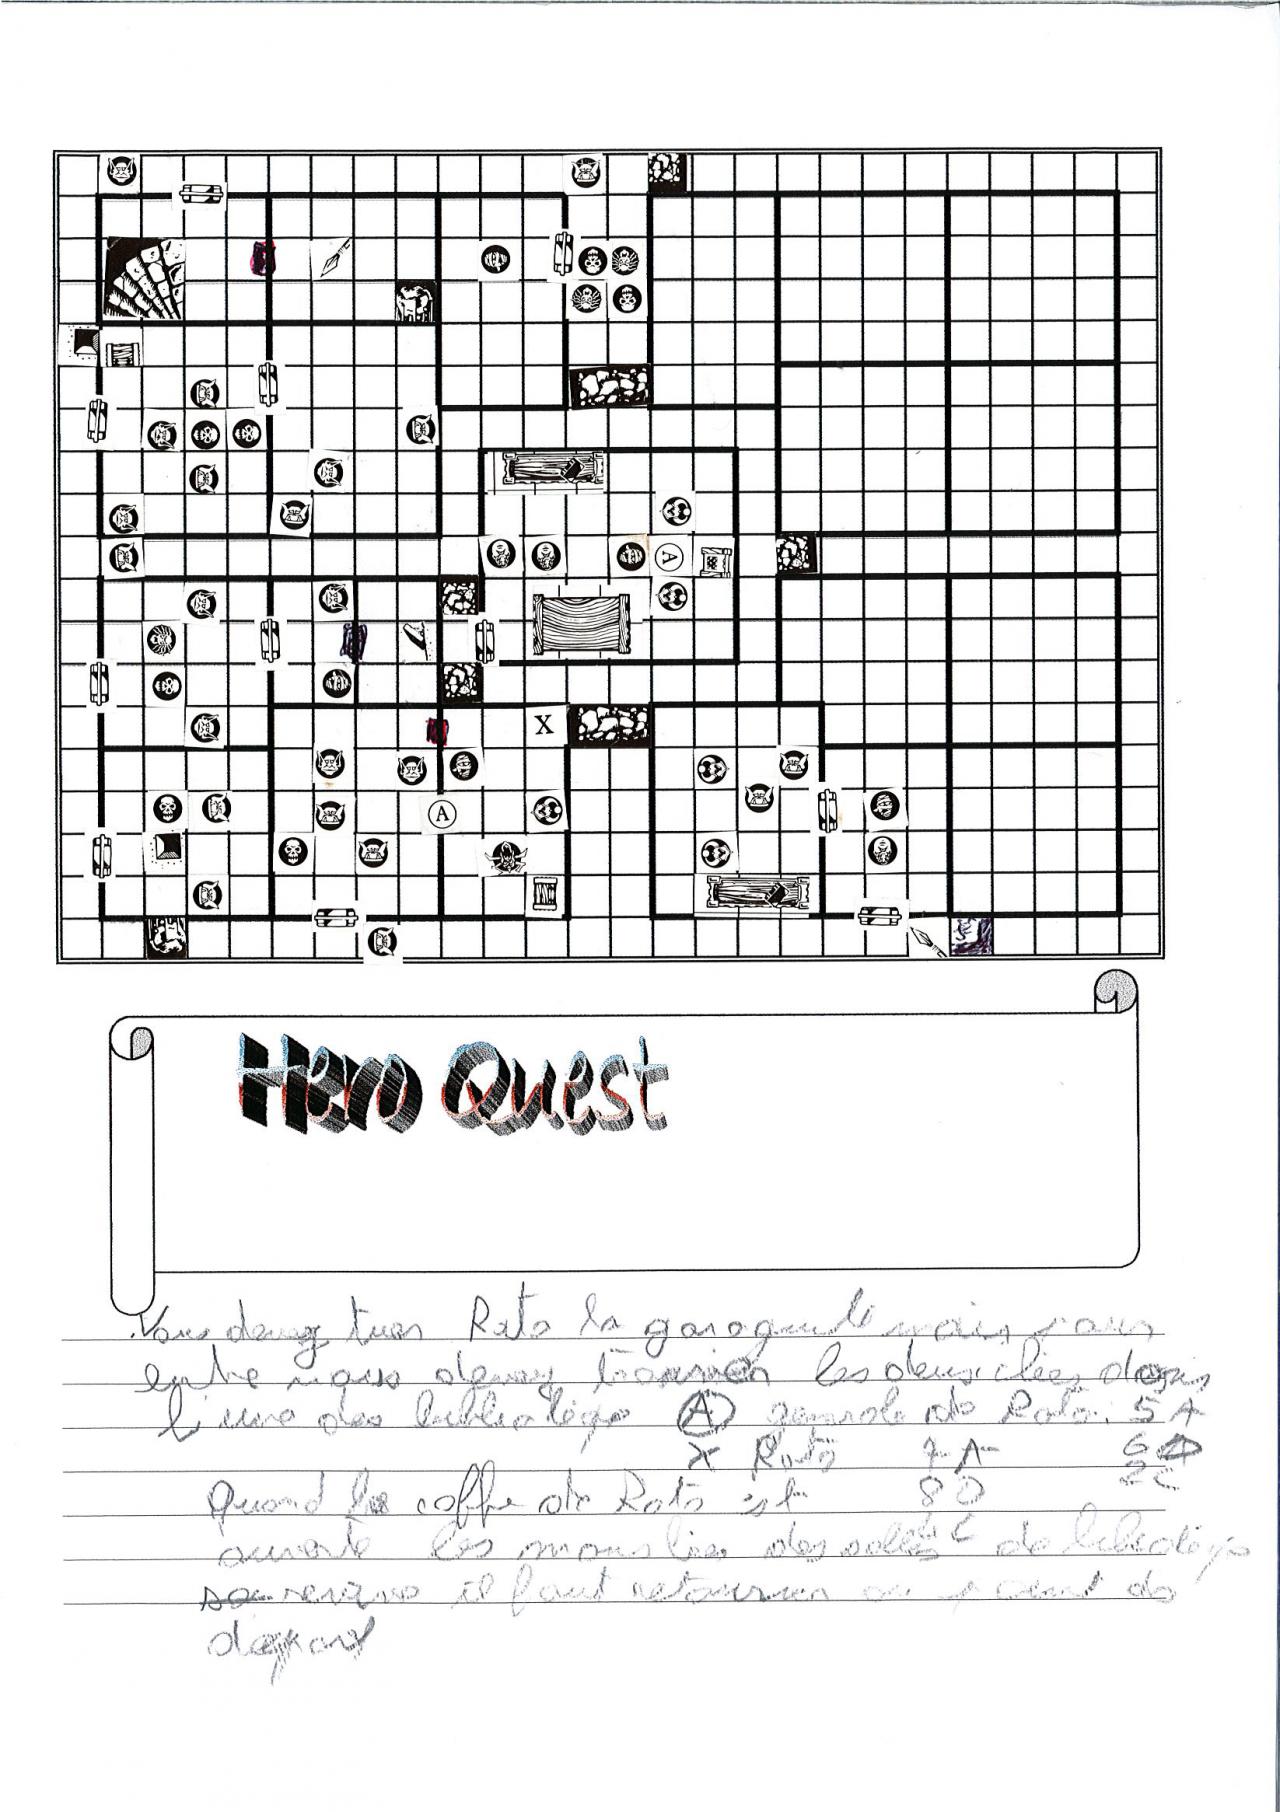 A
X
A
Hero Quest
Vous devez tuer Rato la gargouille mais pour
entre vous devez trouver les deux clées dans
l'une des (A) generale de Rato : 5 A
X Rato 7 A 6 D
2 C
Quand le coffre de Rato est 8 D
ouverte les monstres des salles 6 C de
il faut retourner au point de
depart